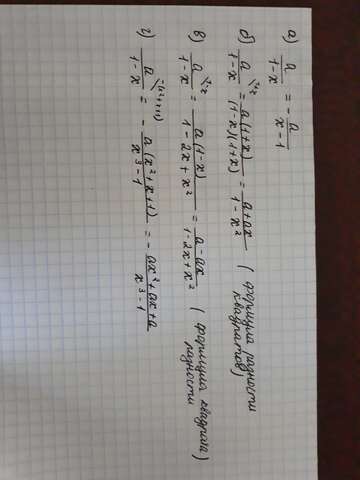 а) a/(1-x) = - a/(x-1)
б) a/(1-x) \1+x = a(1+x)/((1-x)(1+x)) = (a+ax)/(1-x²) (формула разности квадратов)
в) a/(1-x) \1-x = a(1-x)/(1-2x+x²) = (a-ax)/(1-2x+x²) (формула квадрата разности)
г) a/(1-x) \-(x²+x+1) = - a(x²+x+1)/(x³-1) = - (ax²+ax+a)/(x³-1)